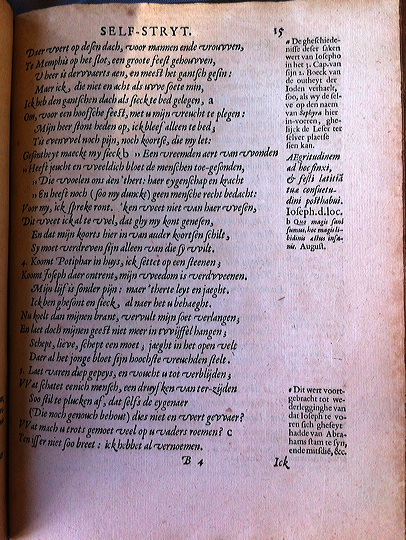 SELF-STRYT. 15
Daer wert op desen dach, voor mannen ende vrouwen,
Te Memphis op het slot, een groote feest gehouwen,
V heer is derwaerts aen, en meest het gantsch gesin:
Maer ick, die niet en acht als uwe soete min,
Ick heb den gantschen dach als sieck te bed gelegen, a
Om, voor een hoofsche feest, met u mijn vreucht te plegen:
Mijn heer stont heden op, ick bleef alleen te bed,
Tis evenwel noch pijn, noch koortse, die my let:
Gesontheyt maeckt my sieck b „ Een vreemden aert van wonden
„ Heeft jeucht en weeldich bloet de menschen toe-gesonden,
„ Die woelen ons aen 'thert: haer eygenschap en kracht
„ En heeft noch (soo my dunckt) geen mensche recht bedacht:
Voor my, ick spreke ront, ken weet niet van haer wesen,
Dit weet ick al te wel, dat ghy my kont genesen,
En dat mijn koorts hier in van ander koortsen schilt,
Sy moet verdreven sijn alleen van die sy wilt.
4. Koomt Potiphar in huys, ick sette op een steenen;
Koomt Joseph daer ontrent, mijn weedom is verdwenen.
Mijn lijf is sonder pijn: maer 'therte leyt en jaeght.
Ick ben ghesont en sieck, al naer het u behaeght.
Nu koelt dan mijnen brant, vervult mijn soet verlangen;
En laet doch mijnen geest niet meer in twijffel hangen;
Schept, lieve, schept een moet; jaeght in het open velt
Daer al het jonge bloet sijn hoochste vreuchden stelt.
1. Laet varen diep gepeys, en voucht u tot verblijden;
VVat schaet eenich mensch, een druyf ken van ter-zijden
Soo stil te plucken af, dat selfs de eygenaer
(Die noch genouch behout) dies niet en wert gewaer?
VVat mach u trots gemoet veel op u vaders roemen? c
Ten isser niet soo breet: ick hebbet al vernoemen.
B 4
Ick
a De gheschiede-
nisse deser saken
wert van Iosepho
in het 3. Cap. van
sijn 2. Boeck van
de outheyt der
Ioden verhaelt,
soo, als wy de sel-
ve op den naem
van Sephyra hier
in-voeren, ghe-
lijck de Leser ter
selver plaetse
sien kan.
AEgritudinem
ad hoc finxi,
& festi lætitiâ
tuæ consuetu-
dini posthabui.
Ioseph. d. loc.
b Quo magis sani
sumus, hoc magis li-
bidinis æstus insa-
nit. August.
c Dit wert voort-
gebracht tot we-
derlegginghe van
dat Ioseph te vo-
ren sich gheseyt
hadde van Abra-
hams stam te syn,
ende mitsdié, &c.